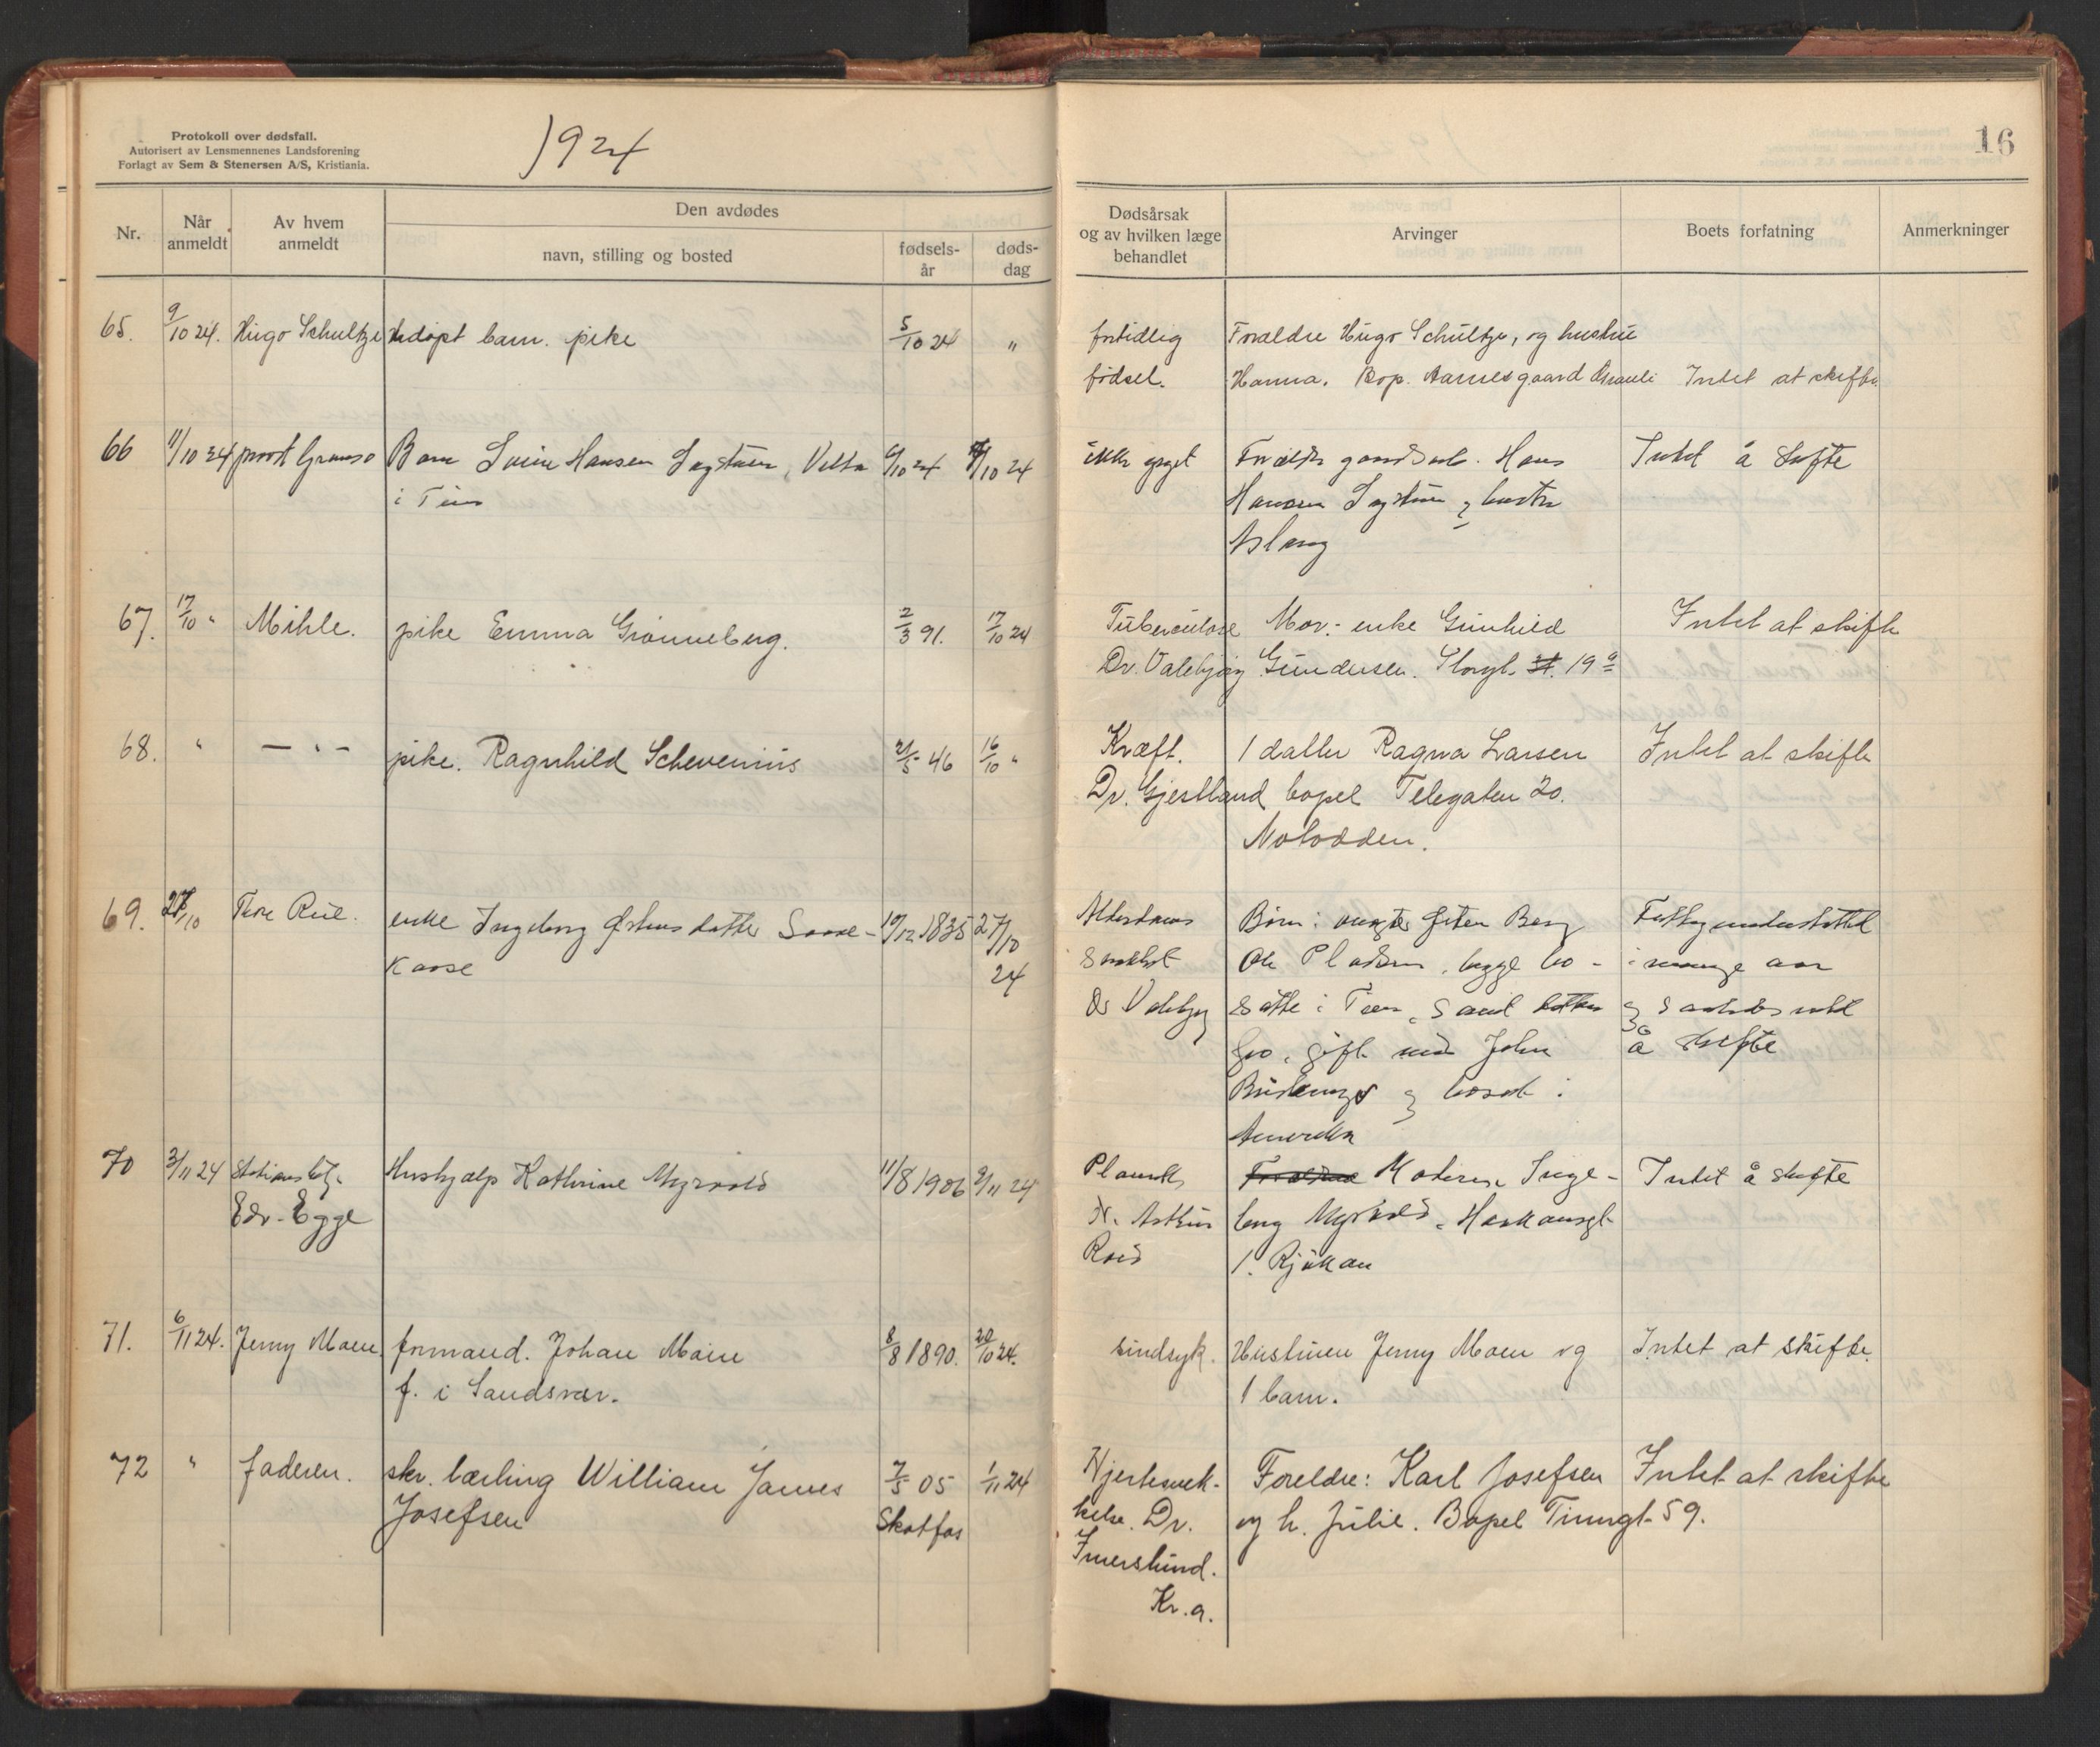 Protokoll over dødsfall.
Autorisert av Lensmennenes Landsforening
Forlagt av Sem & Stenersen A/S, Kristiania.
1924
Nr.
Når anmeldt
Av hvem anmeldt
Den avdødes
navn, stilling og bosted
fødsels-år
døds-dag
65. 9/10 24. Hugo Schultze Udøpt barn. pike 5/10 24 "
66 11/10 24 Barn Hansen 6/10 24 /10 24
i Tinn
67. 17/10 " Mihle. pike Emma Grønneberg. 2/3 91. 17/10 24
68. " — " — pike. Ragnhild Schevenius 21/5 46 16/10 "
69. /10 Thore Rue. enke Ingeborg datter 1835 27/10
24
70 3/11 24 Hushjælp Kathrine Myrvold 11/8 1906 2/11 24
Edv. Egge
71. 6/11 24. Jenny Moen formand. Johan Moen 8/8 1890. 20/10 24.
f. i Sandsvær.
72 " faderen. skr. lærling William James 7/5 05 1/11 24
Josefsen Skotfos
16
Dødsårsak
og av hvilken læge
behandlet
Arvinger
Boets forfatning
Anmerkninger
fortidlig Forældre Hugo Schultze, og hustru
fødsel. Hanna. Bop. Intet at skifte
ikke Forældre Hans Intet å skifte
Hansen og hustru
Aslaug
Tuberculose Mor:- enke Gunhild Intet at skifte
Dr. Valebjørg Gundersen. Storgt. 19 a
Kræft. 1 datter Ragna Larsen Intet at skifte
Dr. Gjestland bopel Telegaten 20.
Notodden.
Alderdoms Børn: Berg
svakhet Ole begge bo- i mange aar
Dr Valebjørg satte i Tinn, samt datter og
gift med John å skifte
og bosat i
Amerika
Moderen Inge- Intet å skifte
Dr. Arthur borg Myrvold,
1. Rjukan
sindsyk. Hustruen Jenny Moen og Intet at skifte.
1 barn.
Hjertesvek- Foreldre: Karl Josefsen Intet at skifte
kelse. Dr. og h. Julie. Bopel Tinngt. 59.
Imerslund.
Kr.a.